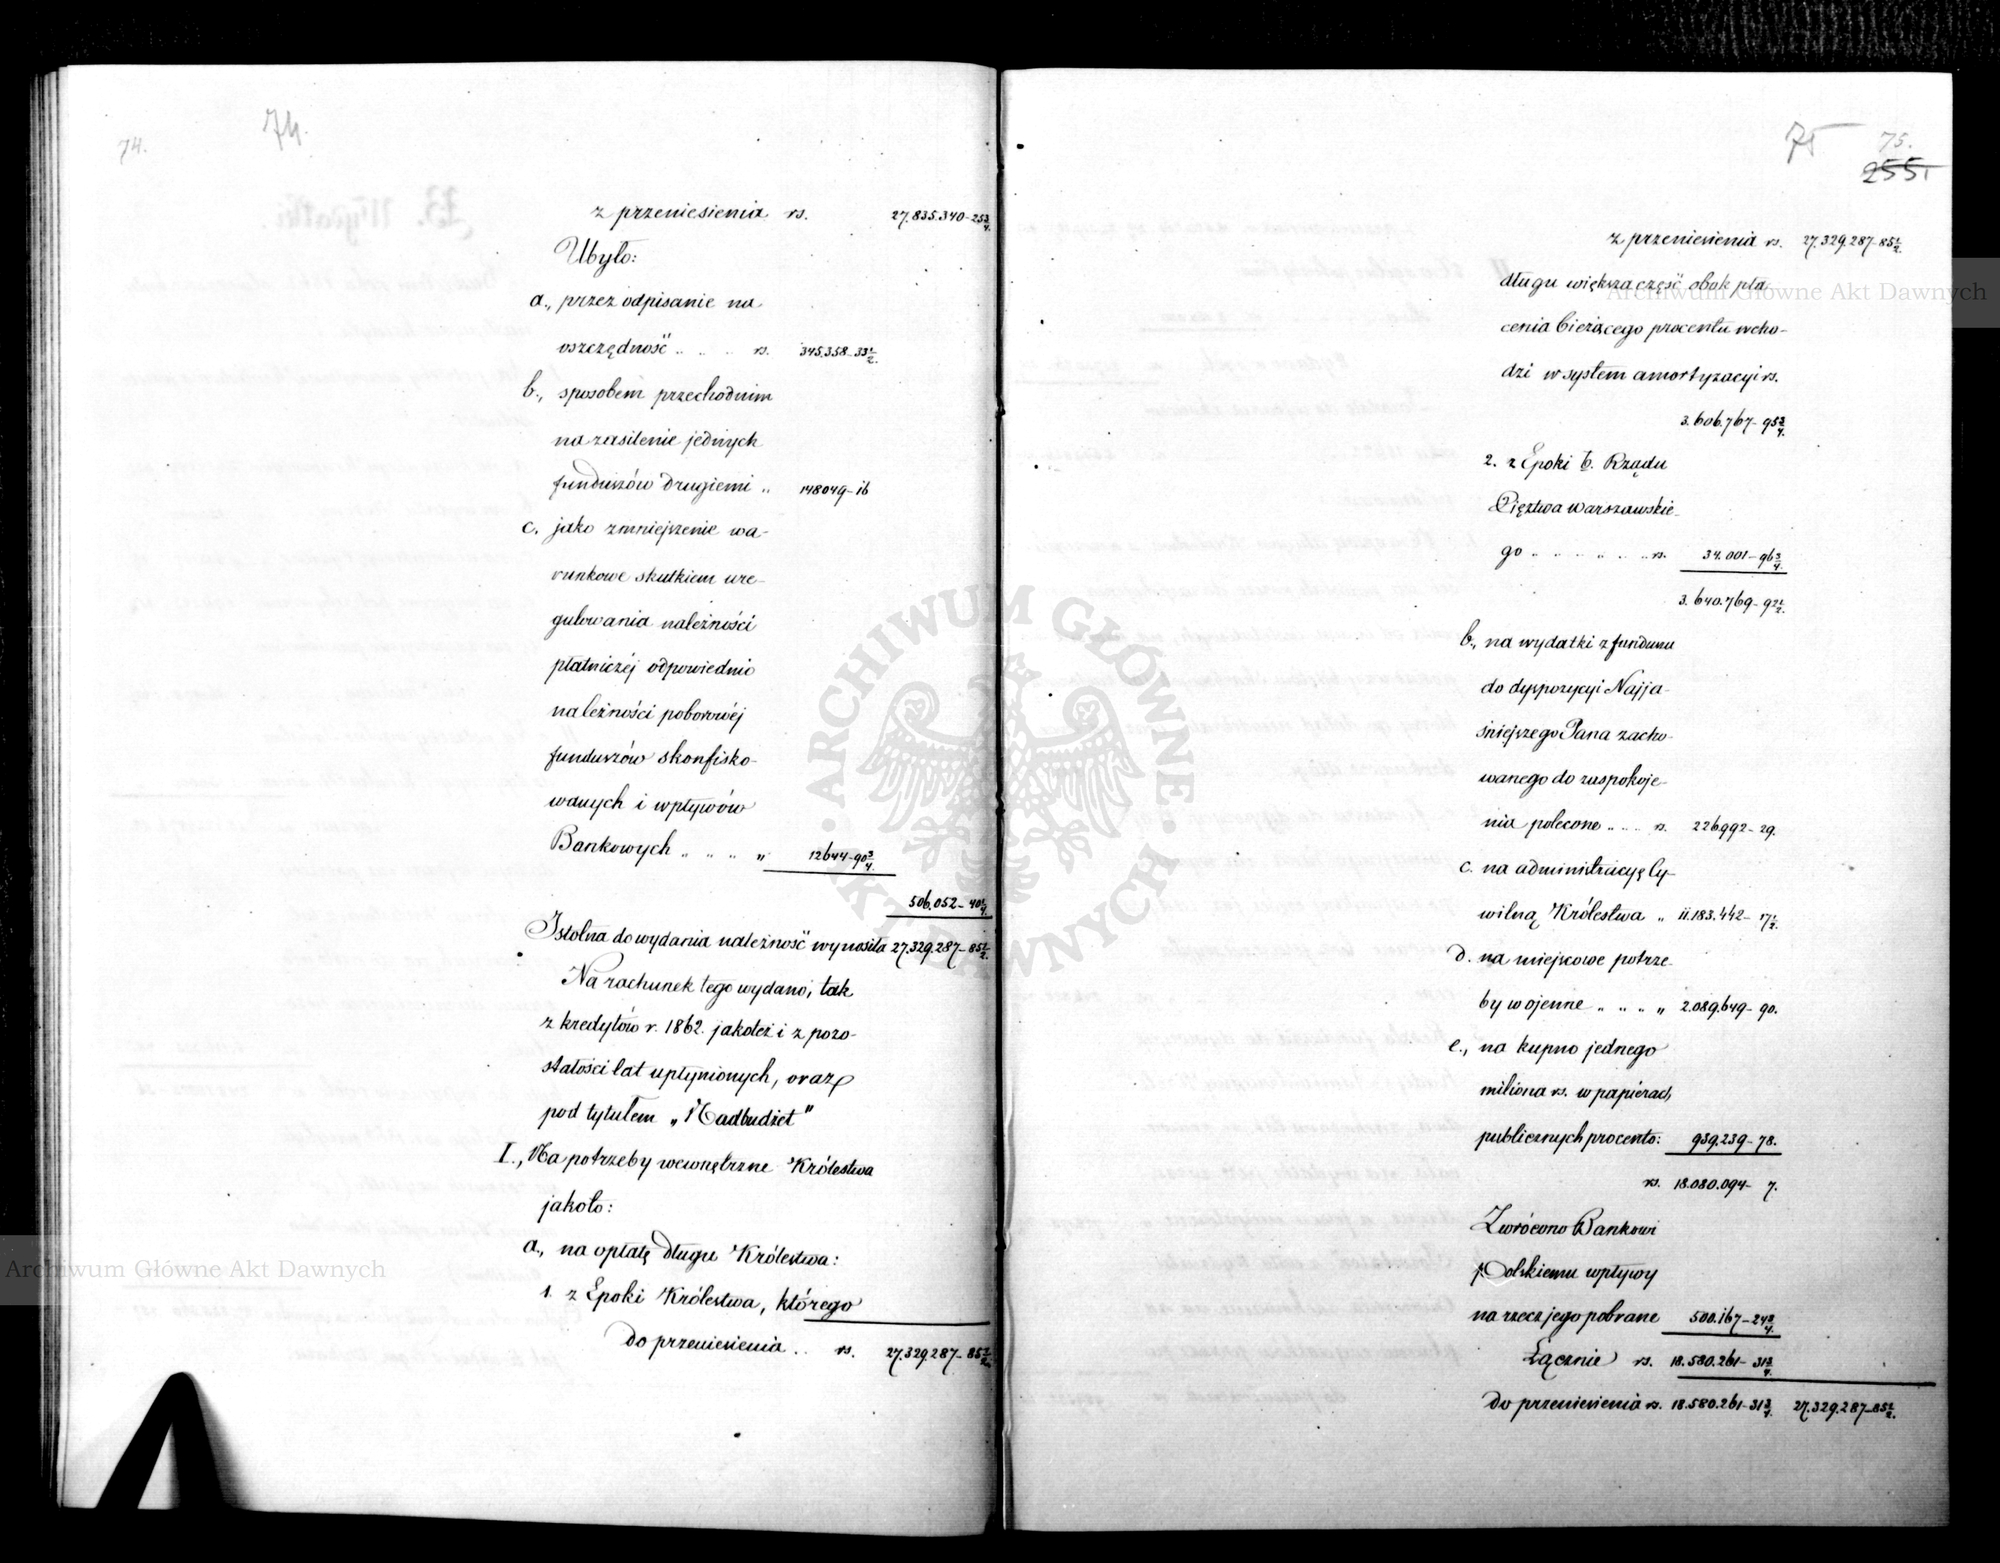 74.
74.
z przeniesienia rs. 27.835.340-25 3/4.
Ubyło:
a., przez odpisanie na
oszczędność „ „ „ rs. 345.358-33 1/2.
b., sposobem przechodnim
na zasilenie jednych
funduszów drugiemi „ 148049-16
c. jako zmniejszenie wa-
runkowe skutkiem ure-
gulowania należności
płatniczéj odpowiednio
należności poborowéj
funduszów skonfisko-
wanych i wpływów
Bankowych „ „ „ „ 12644-90 3/4.
506.052-40 1/4.
Istotna do wydania należność wynosiła 27.329.287-85 1/2.
Na rachunek tego wydano, tak
z kredytów r. 1862. jakoteż i z pozo-
stałości lat upłynionych, oraz
pod tytułem „Nadbudżet"
I., Na potrzeby wewnętrzne Królestwa
jakoto:
a., na opłatę długu Królestwa:
1. z Epoki Królestwa, którego
do przeniesienia .. rs. 27.329.287-85 1/2.
75
75.
255.
z przeniesienia rs. 27.329.287-85 1/2.
długu większa część obok pła-
cenia bieżącego procentu wcho-
dzi w system amortyzacyi rs.
3.606.767-95 3/4.
2. z Epoki b. Rządu
Xięztwa Warszawskie-
go „ „ „ „ „ rs. 34.001-96 3/4.
3.640.769-92 1/2.
b., na wydatki z funduszu
do dyspozycyi Najja-
śniejszego Pana zacho-
wanego do zaspokoje-
nia polecone „ „ rs. 226.992-29.
c. na administracyę Cy-
wilną Królestwa „ 11.183.442-17 1/2.
d. na miejscowe potrze-
by wojenne „ „ „ „ 2.089.649-90.
e., na kupno jednego
miliona rs. w papierach
publicznych procento: 939.239-78.
rs. 18.080.094-7.
Zwrócono Bankowi
Polskiemu wpływy
na rzecz jego pobrane 500.167-24 3/4.
Łącznie rs. 18.580.261-31 3/4.
do przeniesienia rs. 18.580.261-31 3/4. 27.329.287-85 1/2.
Archiwum Główne Akt Dawnych
Archiwum Główne Akt Dawnych
ARCHIWUM GŁÓWNE • AKT DAWNYCH •